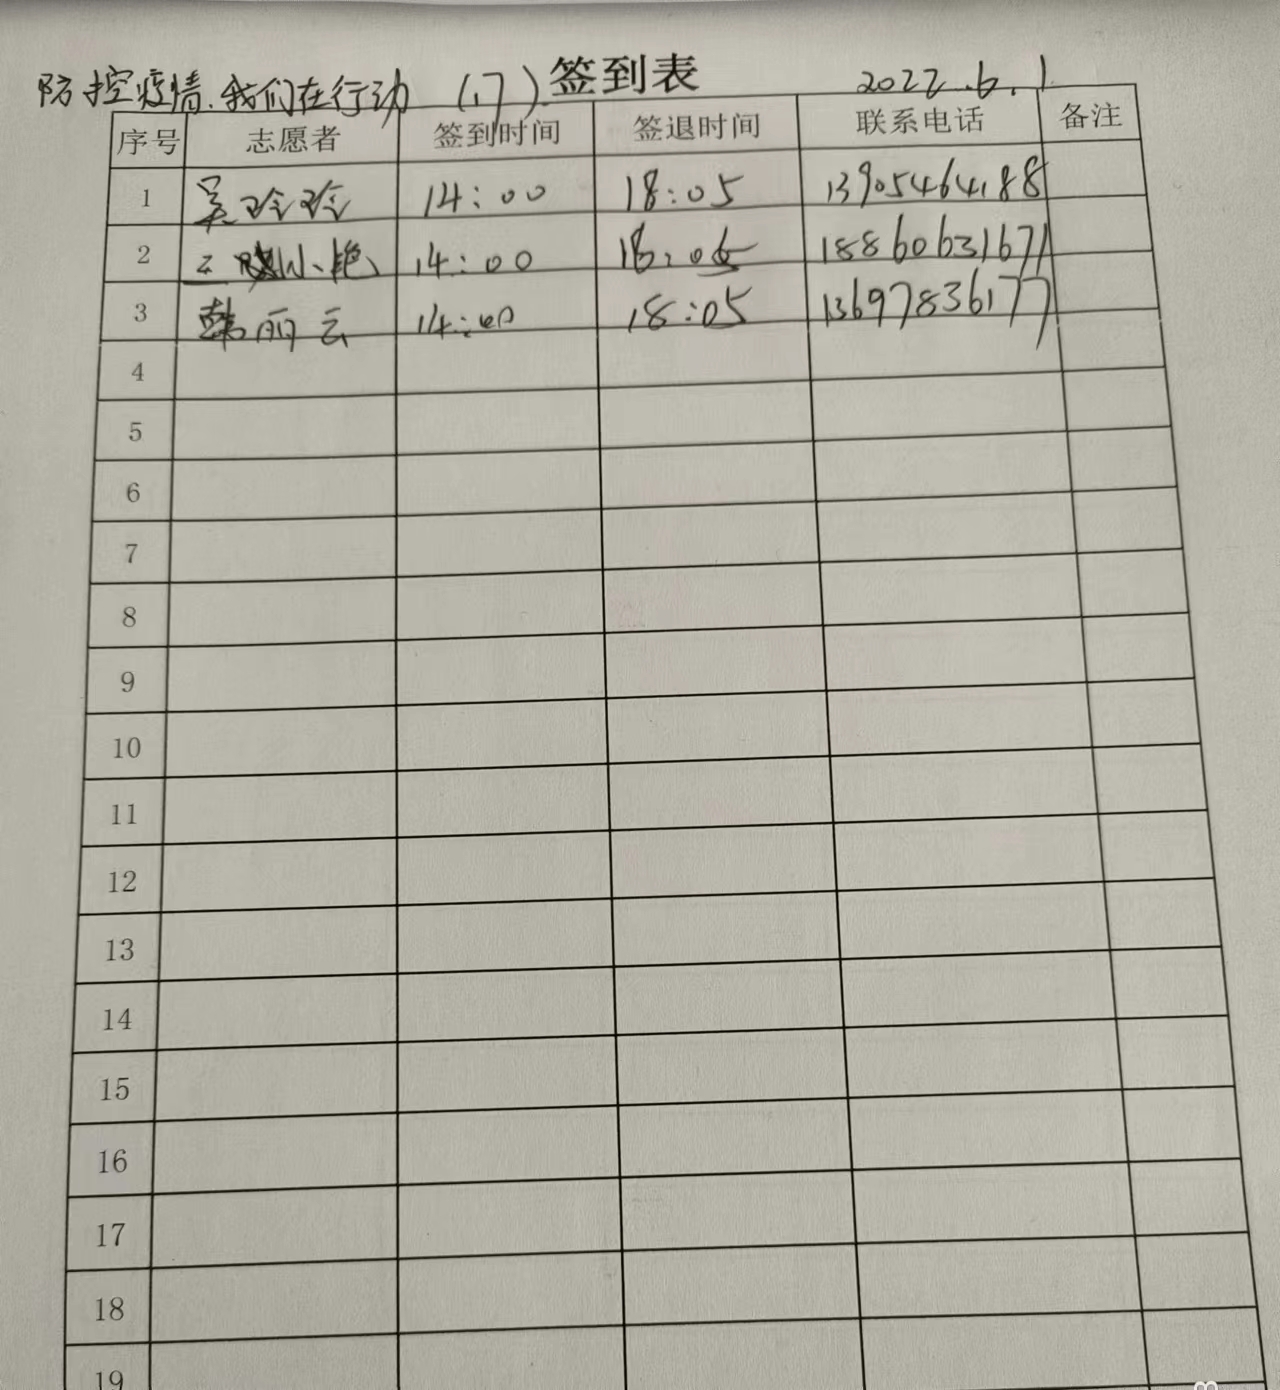 防控疫情.我们在行动 (17) 签到表 2022.6.1
序号 志愿者 签到时间 签退时间 联系电话 备注
1 吴玲玲 14:00 18:05 13905464188
2 小艳 14:00 18:05 18860631671
3 韩丽云 14:00 18:05 13697836177
4
5
6
7
8
9
10
11
12
13
14
15
16
17
18
19